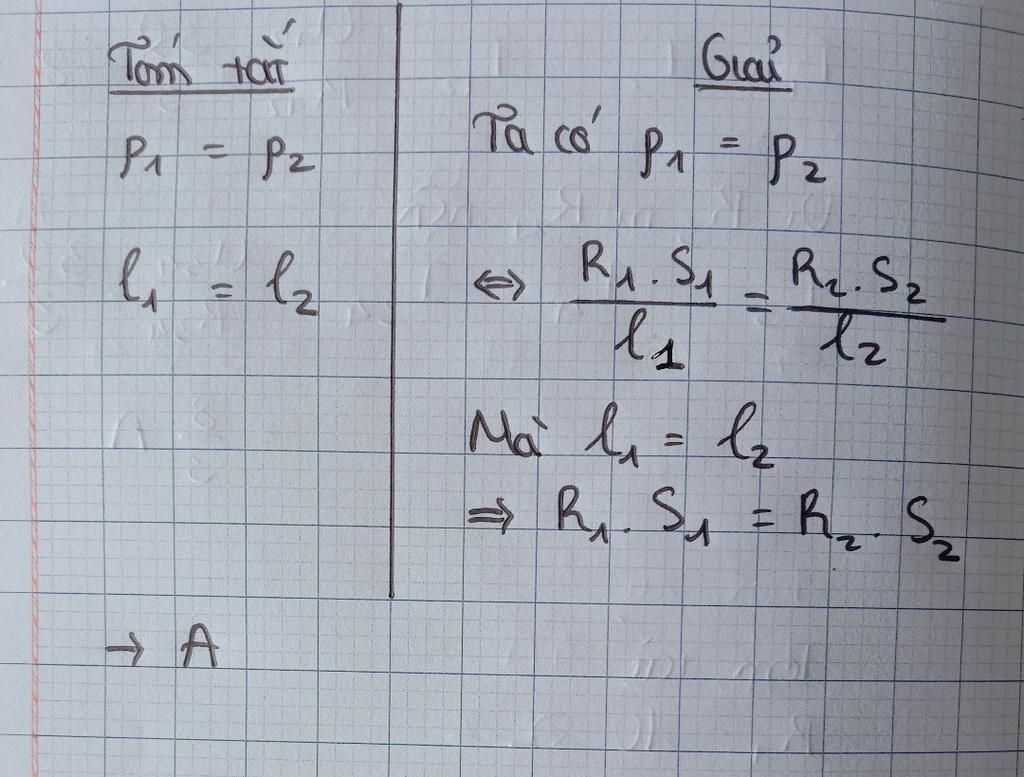 Tóm tắt
ρ₁ = ρ₂
l₁ = l₂
→ A
Giải
Ta có ρ₁ = ρ₂
⇔ R₁.S₁/l₁ = R₂.S₂/l₂
Mà l₁ = l₂
⇒ R₁. S₁ = R₂. S₂